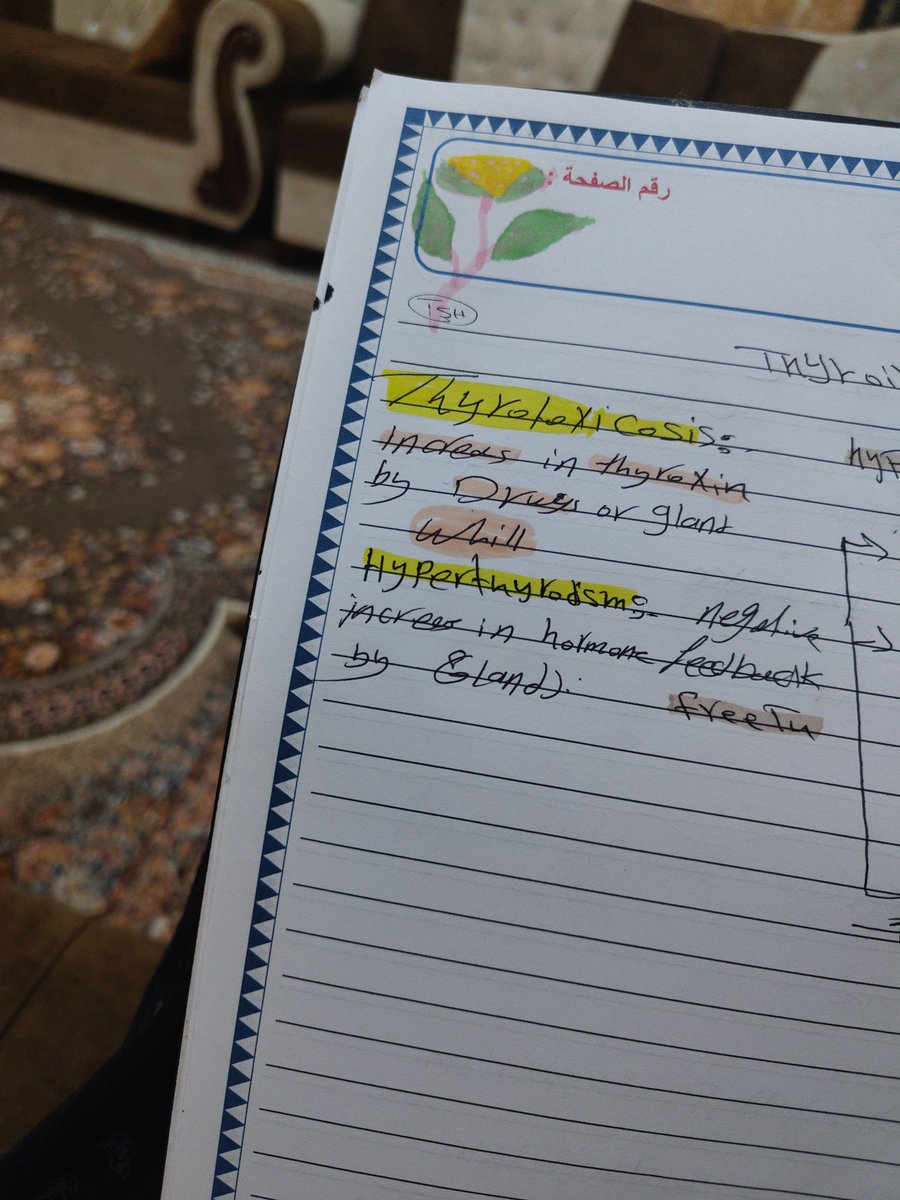 رقم الصفحة :
TSH
Thyroi
Thyrotoxicosis:
hyp
Increas in thyroxin
by Drugs or gland
Whill
Hyperthyrodism: negative
increas in hormone feedback
by Gland).
free Tu